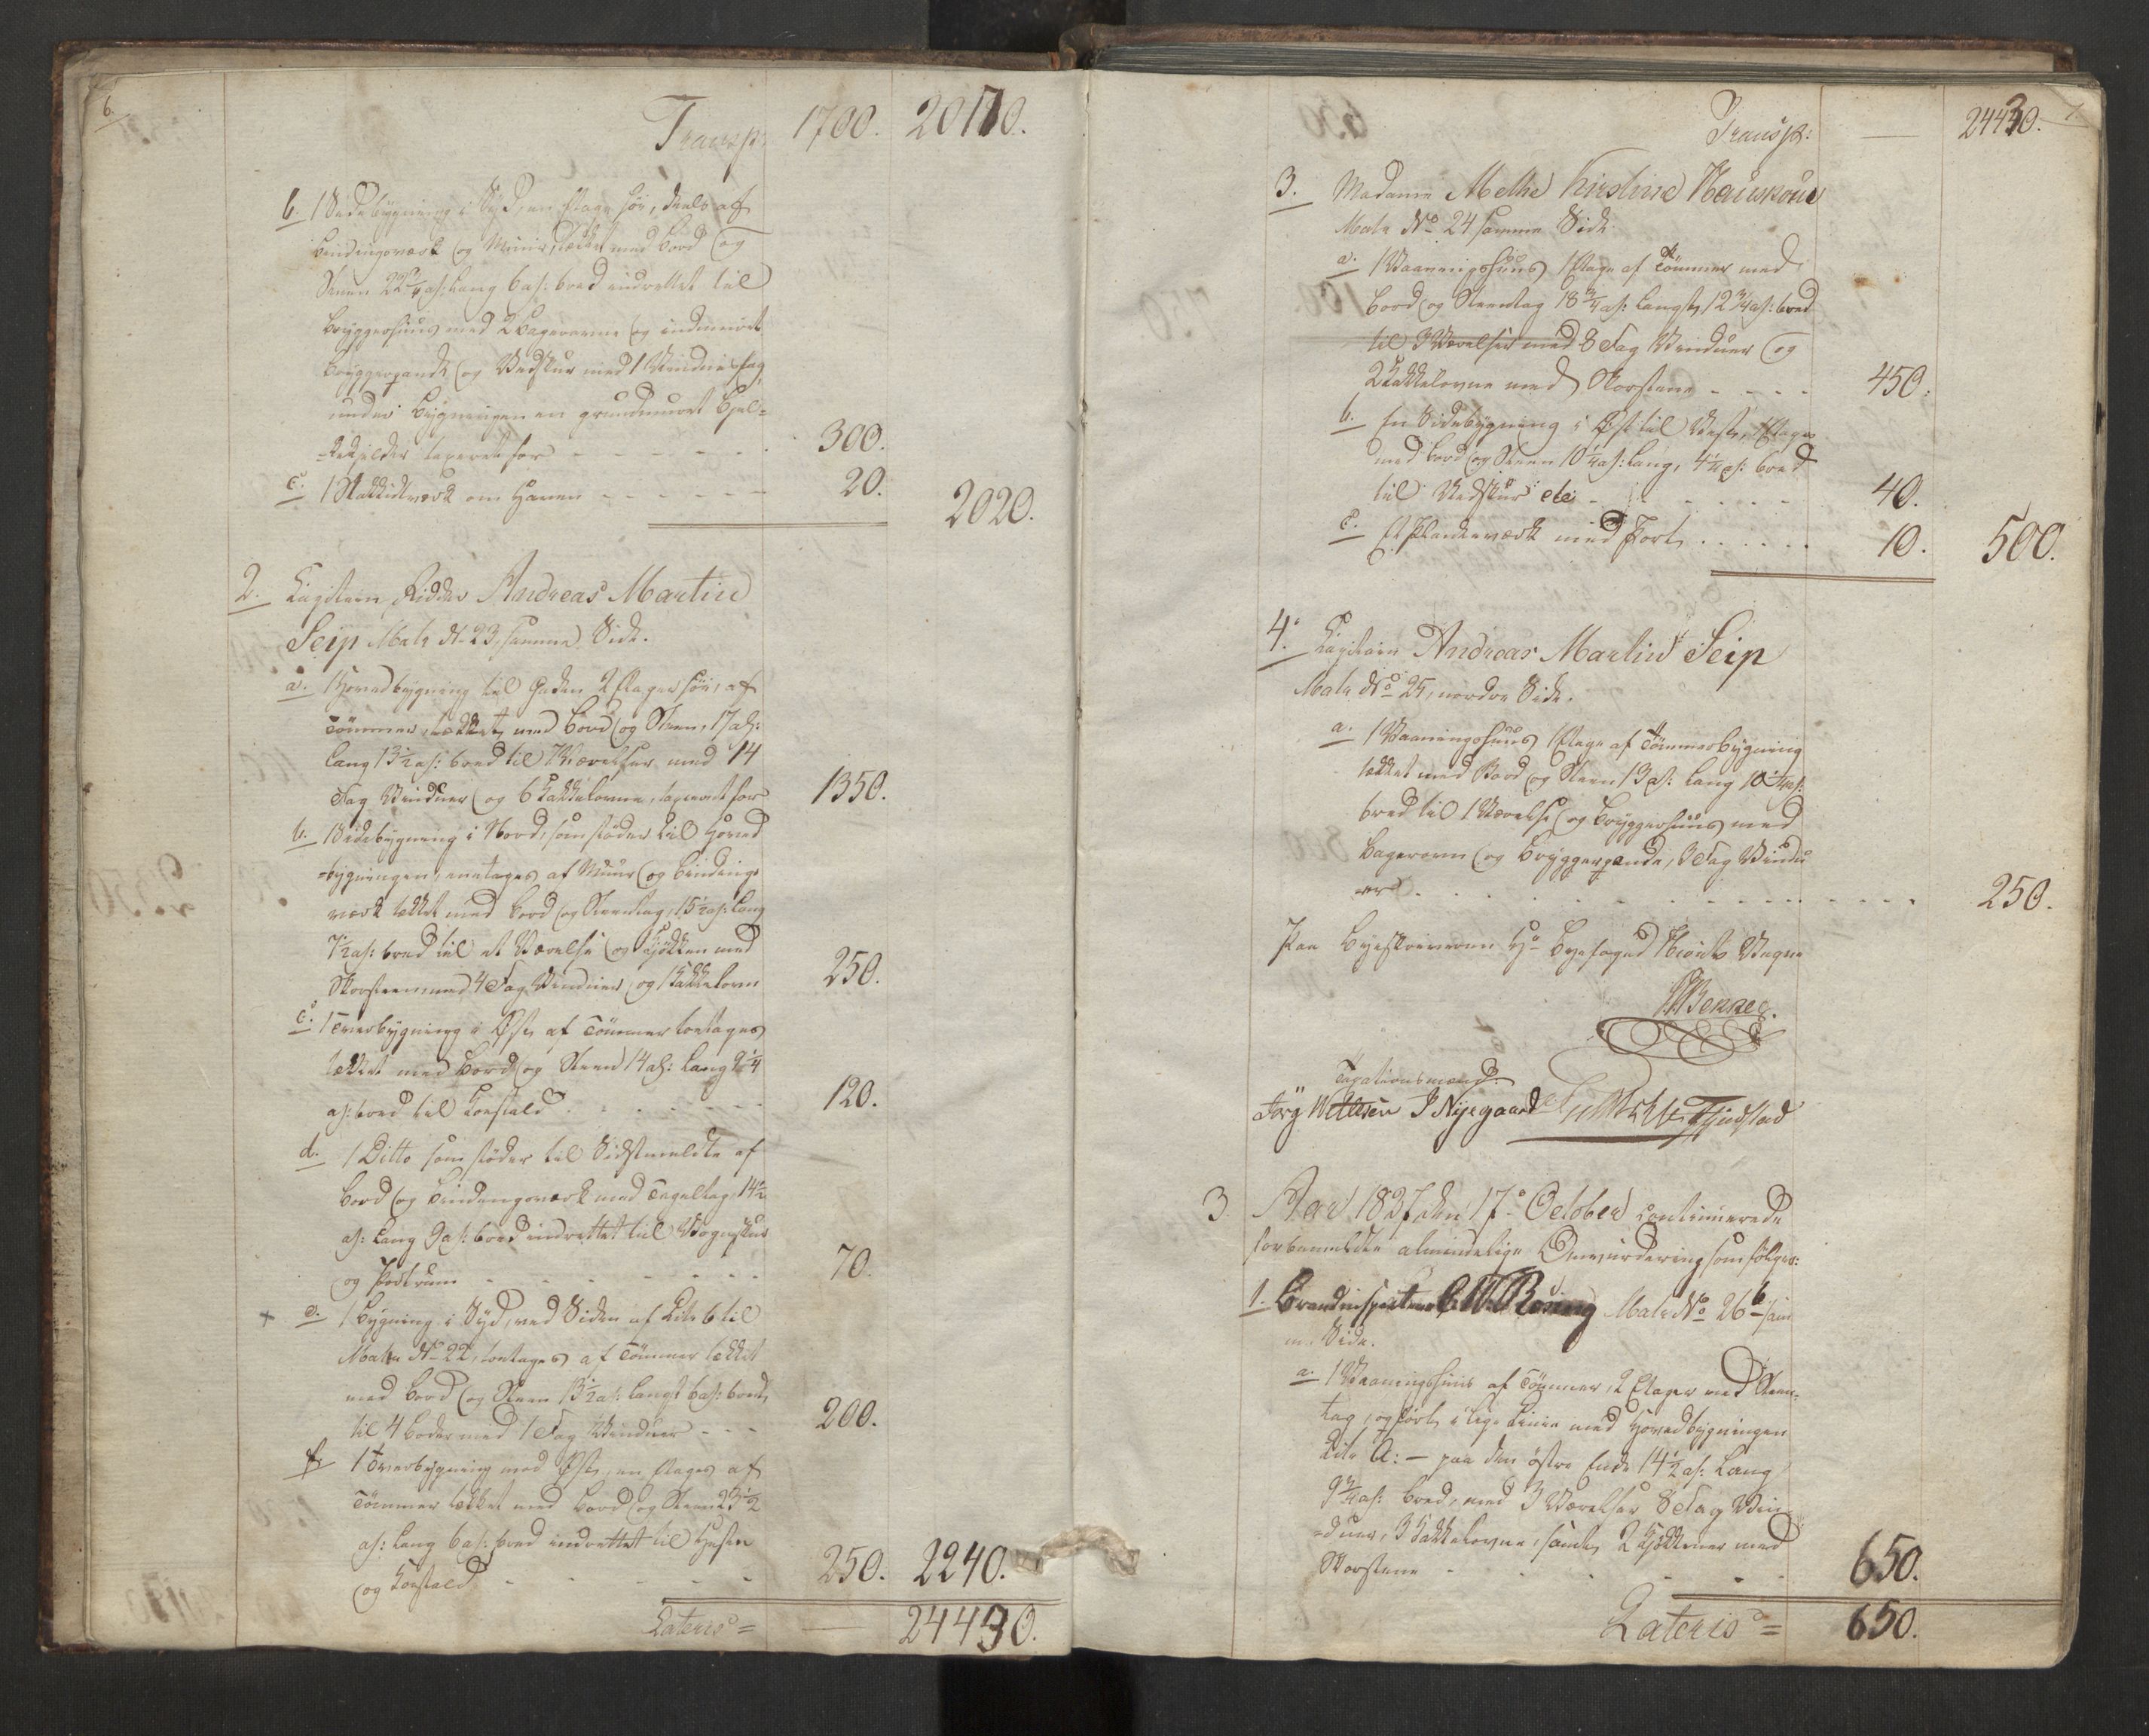 6.
Transp. 1700. 20170.
b. 1 Sidebygning i Syd, en Etage høi, deels af
Bindingsværk og Muur, tækket med Bord og
Steen 22 3/4 al: lang 6 al: bred indrettet til
Bryggerhuus med 2 Bagerovne og indmuret
Bryggerpande og Vedskur med 1 Vindues fag
under Bygningen en grundmuret Hjel-
kjelder taxeret for - - - - - - 300.
c. 1 Stakkitværk om Haven - - - - - - 20. 2020.
2. Capitain, Ridder Andreas Martin
Seip Matr N. 23, samme Side.
a. 1 Hovedbygning til Gaden 2 Etager høi, af
Tømmer, tækket med Bord og Steen, 17 al:
lang 13 1/2 al: bred til 7 Værelser med 14
Fag Vinduer og 6 Kakkelovne, taxeret for 1350.
b. 1 Sidebygning i Nord, som støder til Hoved
-bygningen, eenetages af Muur og Bindings
værk tækket med Bord og Steentag, 15 1/2 al: lang
7 1/2 al: bred til et Værelse og Kjøkken med
Skorsteen med 4 Fag Vinduer og 1 Kakkelovn 250.
c. 1 Tverbygning i Øst, af Tømmer toetages
tækket med Bord og Steen 14 al: lang 9 1/4
al: bred til Kostald - - - - - - 120.
d. 1 Ditto som støder til Sidstmeldte af
Bord og Bindingsværk med Tegeltag, 14 1/2
al: lang 9 al: bred indrettet til Vognskur
og Portrum - - - - - - 70.
+ e. 1 Bygning i Syd, ved Siden af Litr b til
Matr No 22, toetages af Tømmer tækket
med Bord og Steen 13 1/2 al: langt 6 al: bredt
til 4 Boder med 1 Fag Vinduer - - - 200.
f. 1 Tverbygning mod Øst, en Etages af
Tømmer tækket med Bord og Steen 23 1/2
al: lang 6 al: bred indrettet til
og Kostald - - - - - 250. 2240.
Lateris = — 24430.
7
Transp: — 24430.
3. Madame Methe Kirstine
Matr No 24 samme Side
a. 1 Vaaningshuus 1 Etage af Tømmer med
Bord og Steentag 18 3/4 al: langt, 12 3/4 al: bred
til 3 Værelser med 8 Fag Vinduer og
2 Kakkelovne med Skorstene - - - - 450.
b. En Sidebygning i Øst til Vest, 1 Etages
med Bord og Steen 10 1/4 al: lang, 4 1/4 al: bred
til Vedskur etc - - - - - - 40.
c. Et Plankeværk med Port . . . . . . 10. 500.
4. Capitain Andreas Martin Seip
Matr No 25, nordre Side.
a. 1 Vaaningshuus 1 Etage af Tømmerbygning
tækket med Bord og Steen 13 al: lang 10 1/4 al:
bred til 1 Værelse og Bryggerhuus med
Bagerovn og Bryggerpande, 3 Fag Vindu
er - - - - - - - - - - 250.
Paa Byeskriveren Hr Byefoged Vegne
Taxationsmænd:
J Nyegaard
3. Aar 1837 den 17de October continuerede
forbemeldte almindelige Omvurdering som følger:
1. Brandinspecteur Matr No 26 b sam
m. Side.
a. 1 Vaaningshuus af Tømmer, 2 Etager med Steen-
tag, opført i lige Linie med Hovedbygningen
Litr A: — paa den østre Ende 14 1/2 al: lang
9 3/4 al: bred, med 3 Værelser 8 Fag Vin-
-duer, 3 Kakkelovne, samt 2 Kjøkkener med
Skorstene - - - - - - 650.
Lateris = 650.